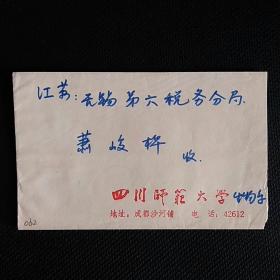 江苏：无锡第六税务分局
萧峻桦 收
四川师范大学
地址：成都沙河铺 电话：42612
062